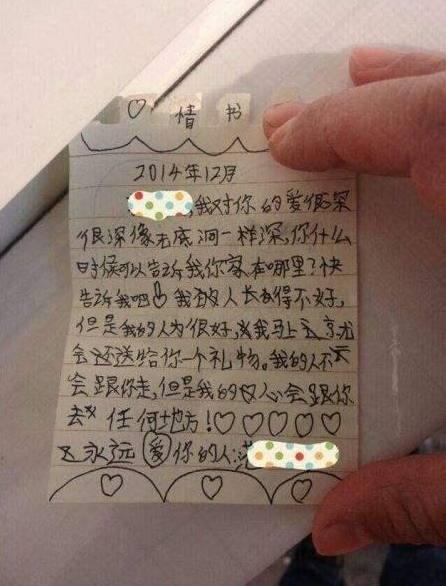 ♡ 情书
2014年12月
,我对你的爱很深
很深像无底洞一样深,你什么
时候可以告诉我你家在哪里?快
告诉我吧 我 人长得不好,
但是我的人为很好,我马上 就
会还送给你一个礼物。我的人不
会跟你走,但是我的 人心会跟你
去 任何地方!♡♡♡♡♡
永远爱你的人: